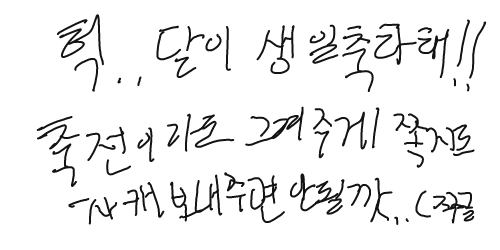 헉.. 달이 생일축하해!!
축전이라도 그려주게 쪽지도
사캐 보내주면 안될까.. (쭈글